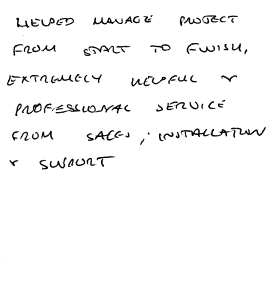 HELPED MANAGE PROJECT
FROM START TO FINISH,
EXTREMELY HELPFUL &
PROFESSIONAL SERVICE
FROM SALES, INSTALLATION
& SUPPORT